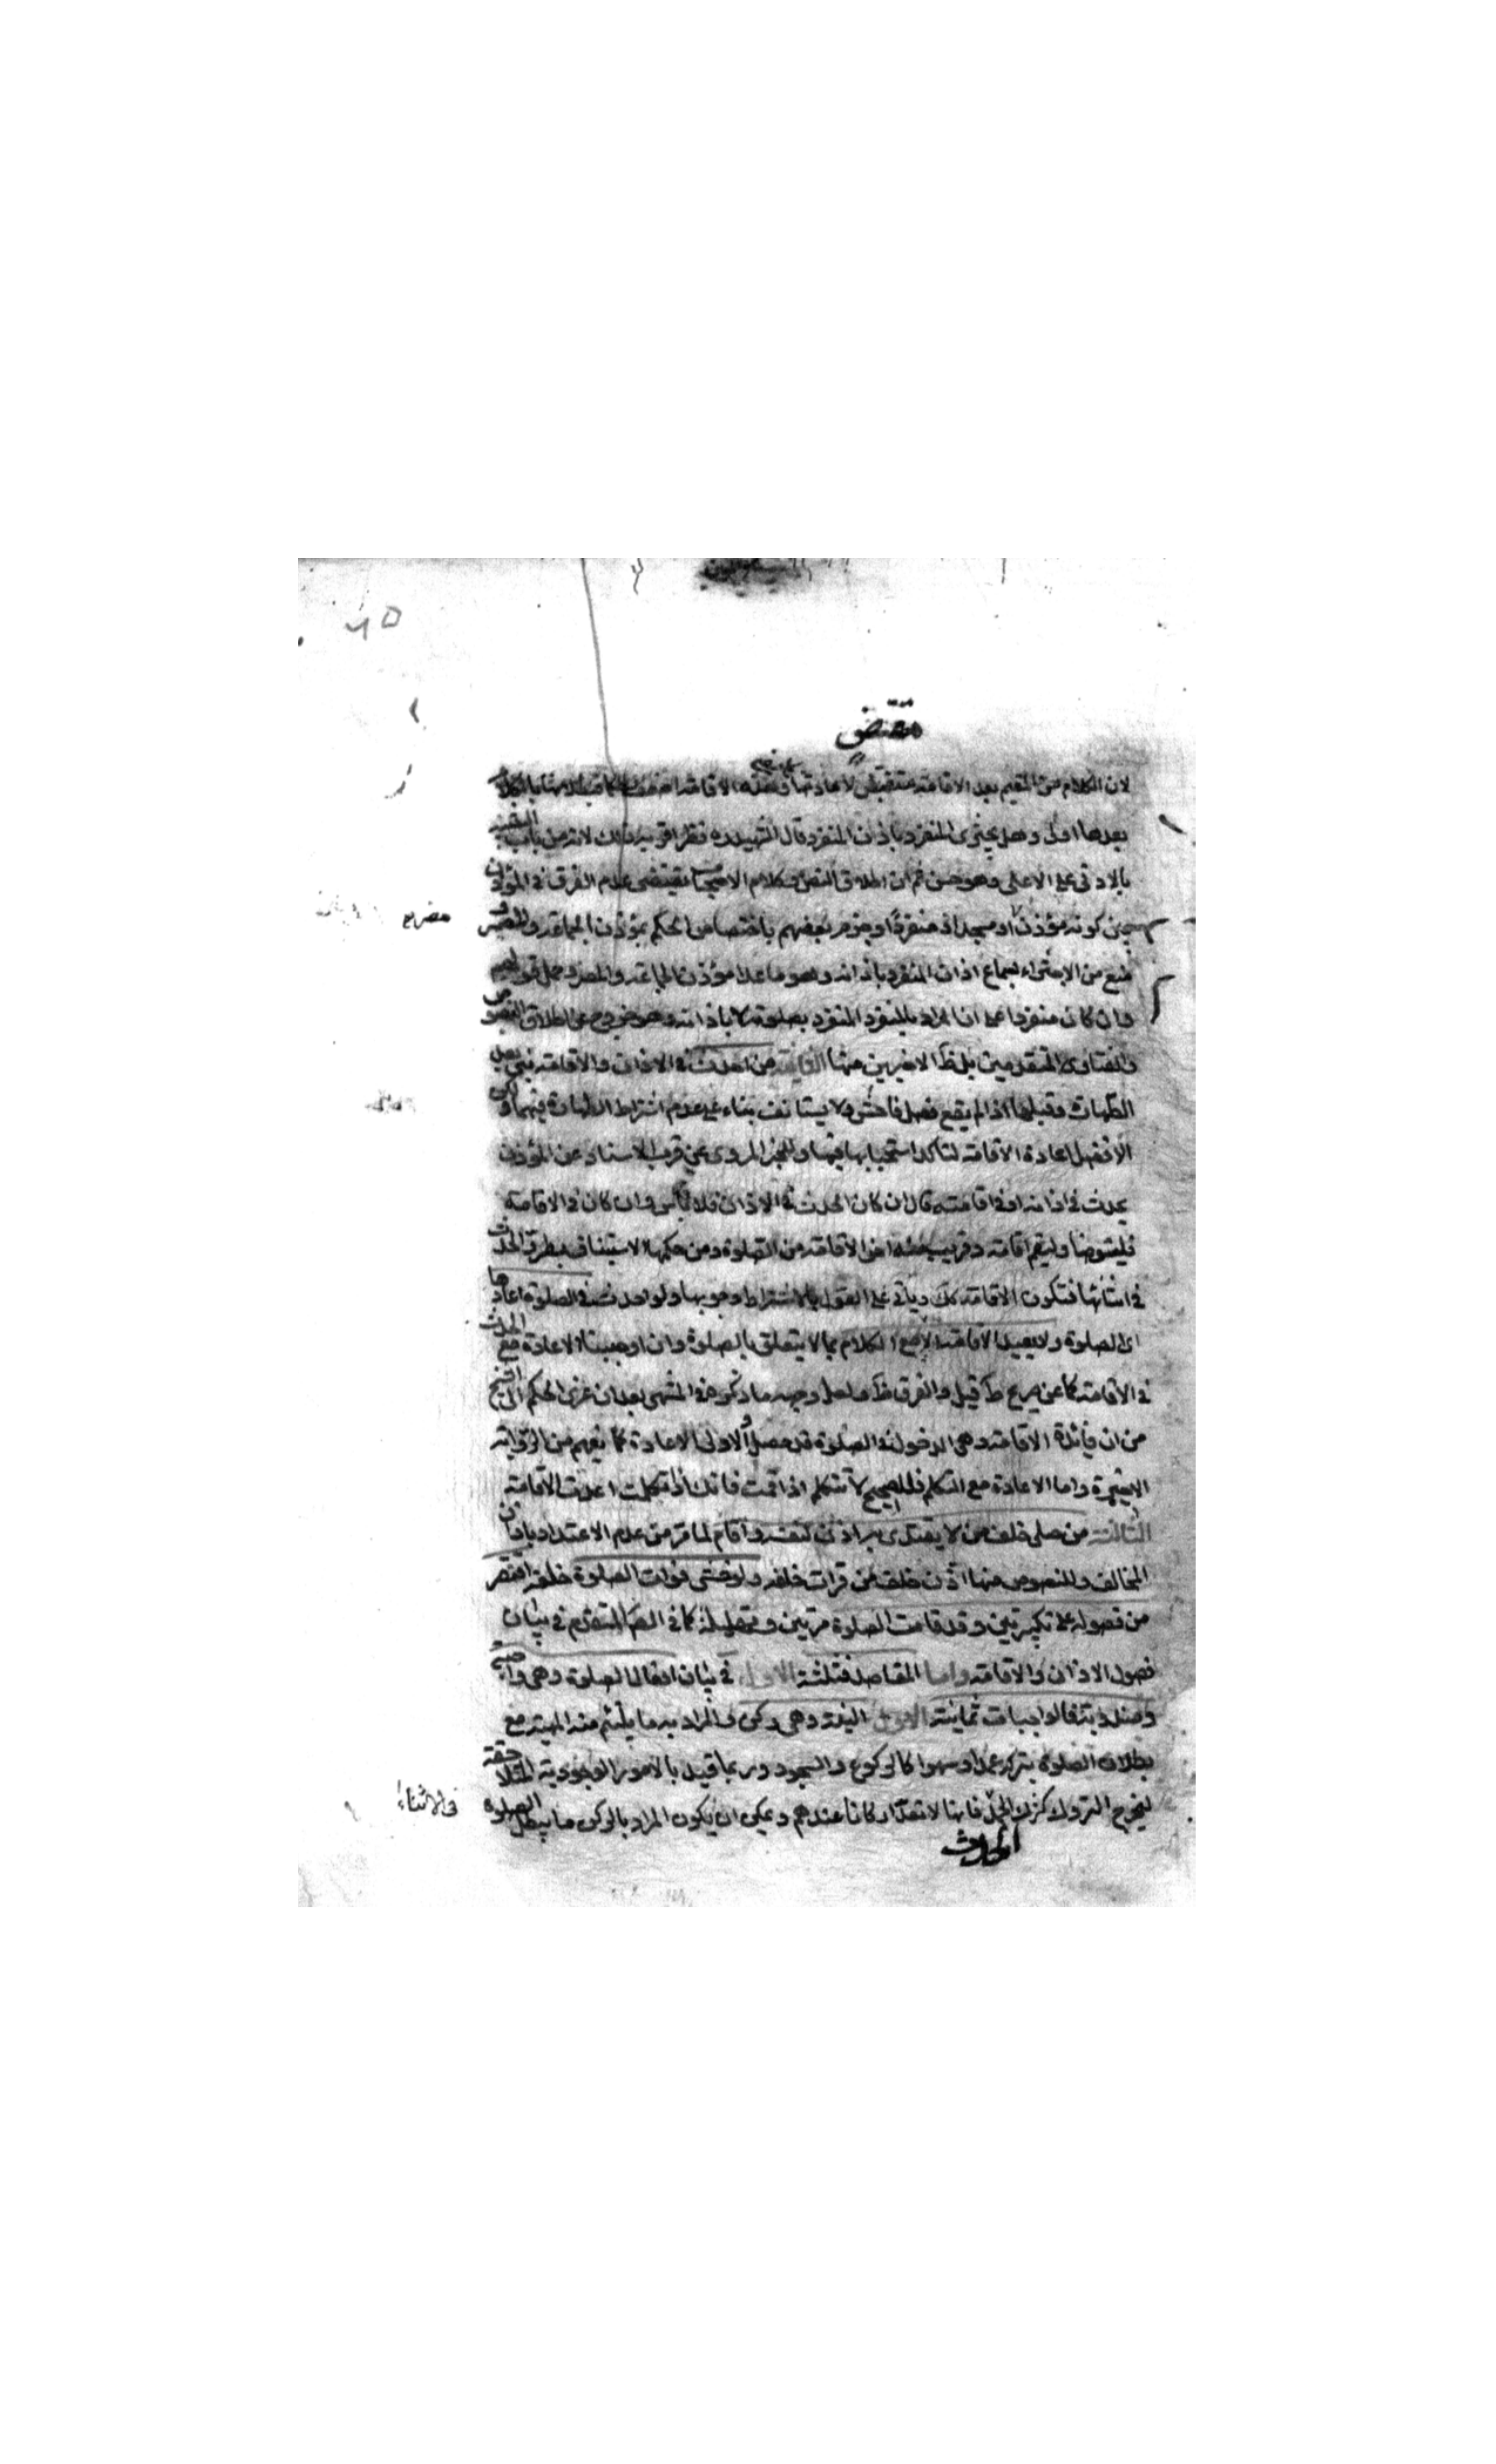 مقتض
لان الكلام من المقيم بعد الاقامة مقتض لاعادتها فهذه الاقامة بالكلام
بعدها اولى وهل يجتزى المنفرد باذان المنفرد قال الشهيد ره فنظر اقربه ذلك لانه من باب التنبيه
بالادنى على الاعلى وهو حسن ثم ان اطلاق النص وكلام الاصحاب يقتضى عدم الفرق فى المؤذن
بين كونه مؤذن او مسجد او منفردا وجزم بعضهم باختصاص الحكم بمؤذن الجماعة والمصر
مصرح
منع من الاجتزاء بسماع اذان المنفرد باذانه وهو ما عدا مؤذن الجماعة والمصر وحمل قولهم
وان كان منفردا على ان المراد بالمنفرد المنفرد بصلوته لا باذانه وهو خروج عن اطلاق النصوص
والفتاوى المتقدمين بل ظ الاخيرين منها الثانية من احدث فى الاذان والاقامة بنى بعد
الطهارة وقبلها اذا لم يقع فصل فاحش ولا يستانف بناء على عدم اشتراط الطهارة فيهما ولكن
الافضل اعادة الاقامة لتاكد استحبابها فيها وللخبر المروى عن قرب الاسناد عن المؤذن
يحدث فى اذانه او فى اقامته قال ان كان الحدث فى الاذان فلا باس وان كان فى الاقامة
فليتوضا وليقم اقامة وقريب منه اخر الاقامة من الصلوة ومن حكمها الاستيناف بطرو الحدث
فى اثنائها فتكون الاقامة كك وياتى على القول بالاشتراط وجوبها ولو احدث فى الصلوة اعادها
اى الصلوة ولا يعيد الاقامة الا مع الكلام بما لا يتعلق بالصلوة وان اوجبنا الاعادة مع الحدث
فى الاقامة كما عن صريح ط قيل والفرق ظ ولعل وجهه ما ذكره فى المنتهى بعد ان عزى الحكم الى الشيخ
من ان فائدة الاقامة وهى الدخول فى الصلوة قد حصل والاولى الاعادة كما يفهم من الرواية
الاخيرة واما الاعادة مع التكلم فللصحيح لا تتكلم اذا اقمت فانك اذا تكلمت اعدت الاقامة
الثالثة من صلى خلف من لا يقتدى به اذن لنفسه واقام لما مر من عدم الاعتداد باذان
المخالف وللنصوص منها اذن خلف من قرات خلفه ولو خشى فوات الصلوة خلفه اقتصر
من فصوله على تكبيرتين وقد قامت الصلوة مرتين وتهليلة كما فى الص المتقدم فى بيان
فصول الاذان والاقامة واما المقاصد فثلثة الاول فى بيان افعال الصلوة وهى واجبة
ومندوبة فالواجبات ثمانية الاول النية وهى ركن والمراد به ما يلتئم منه الهيئة مع
بطلان الصلوة بتركه عمدا وسهوا كالركوع والسجود وربما قيل بالامور الوجودية المتلاحقة
ليخرج التروك كترك الحدث فانها لا تعد اركانا عندهم ويمكن ان يكون المراد بالركن ما يبطل الصلوة
فى الاثناء
الحدث